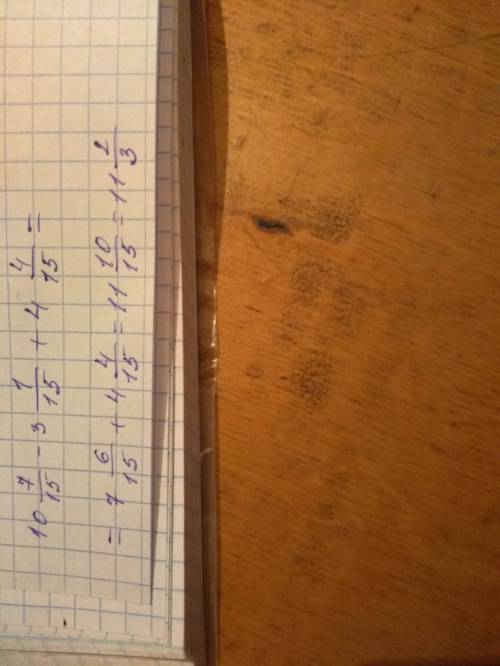 10 7/15 - 3 1/15 + 4 4/15 =
= 7 6/15 + 4 4/15 = 11 10/15 = 11 2/3